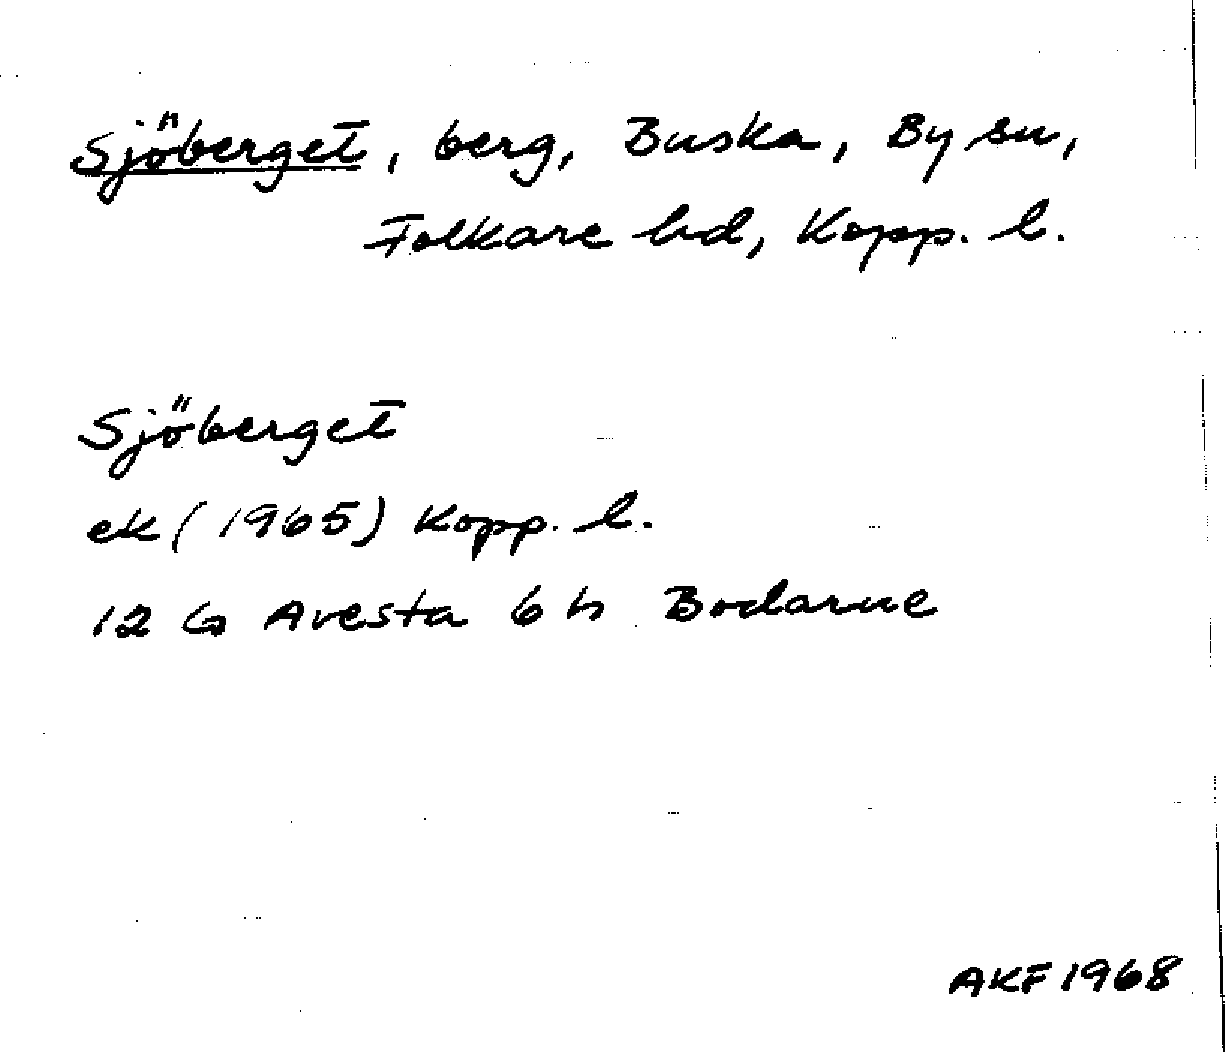 Sjöberget, berg, Buska, By sn,
Folkare hd, Kopp. l.
Sjöberget
ek (1965) Kopp. l.
12 G Avesta 6 h Bodarne
AKF 1968